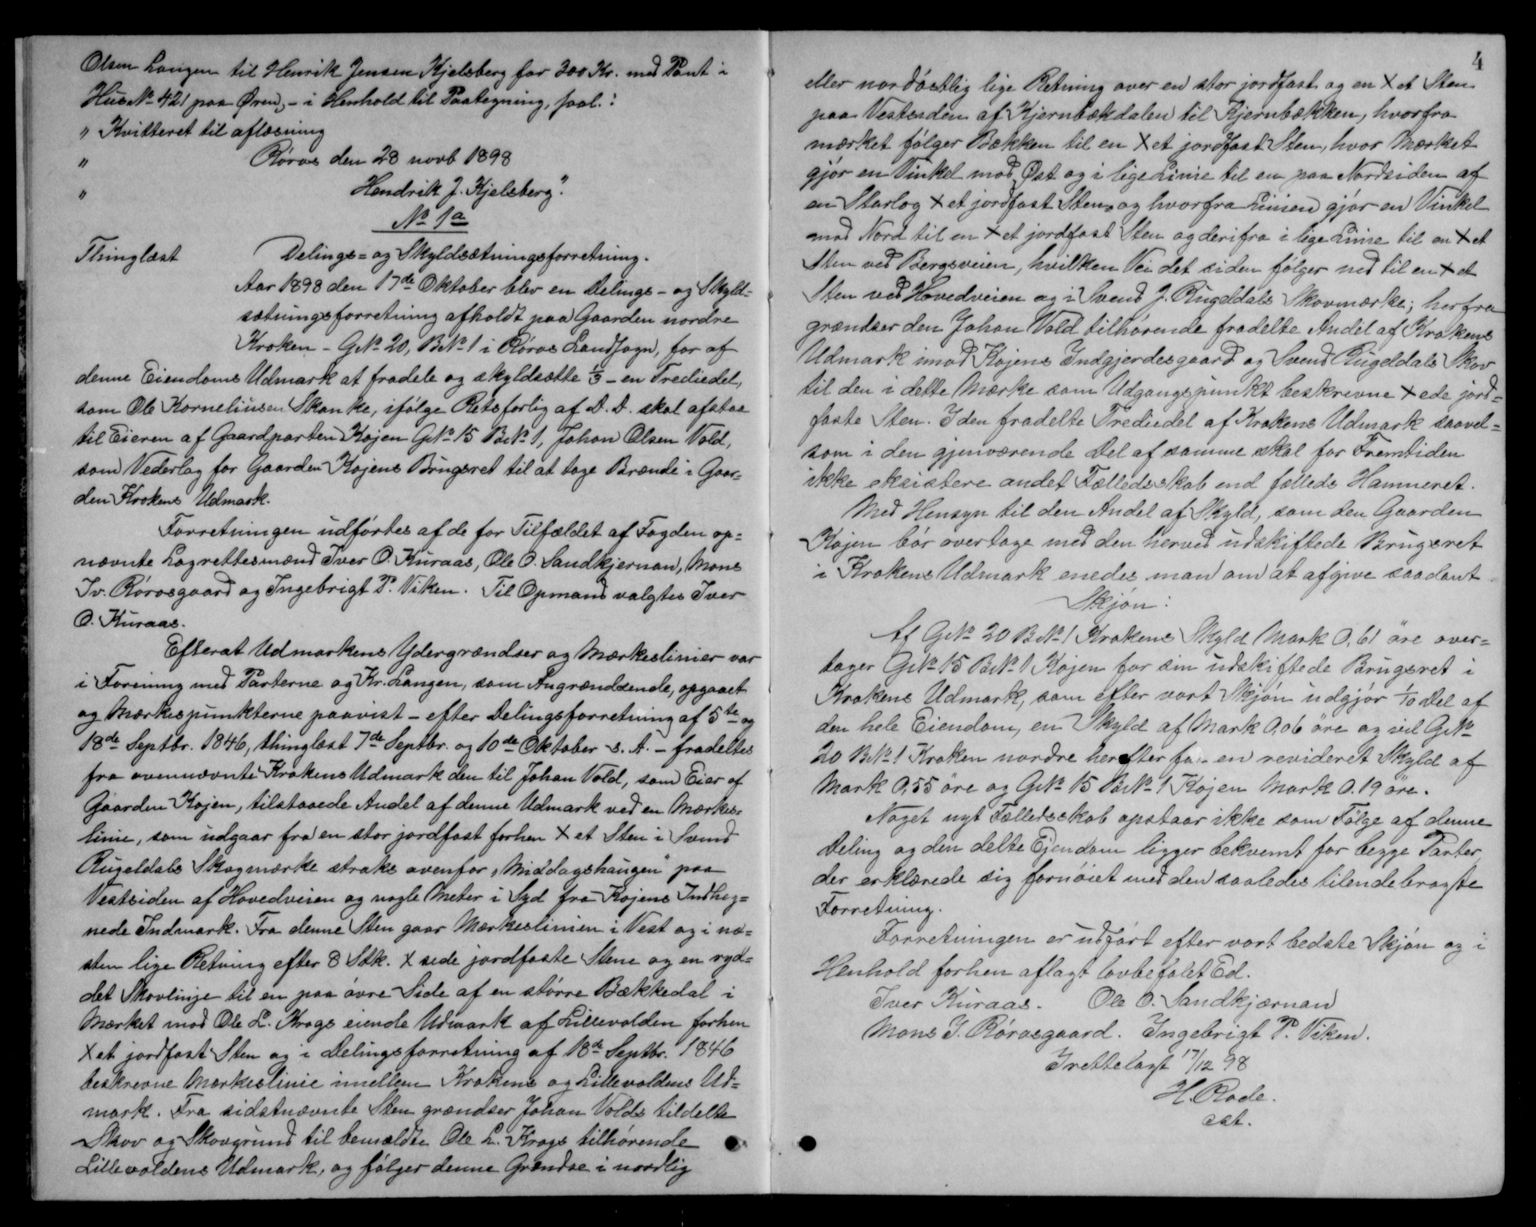 Olsen Langen til Henrik Jensen Kjelsberg for 300 Kr. med Pant i
Hus No 421 paa Øren, - i Henhold til Paategning, saal.:
" Kvitteret til aflæsning
" Røros den 28 novb 1898
" Hendrik J. Kjelsberg".
No 1a
Thinglæst Delings= og Skyldsætningsforretning.
Aar 1898 den 17de Oktober blev en Delings- og Skyld=
sætningsforretning afholdt paa Gaarden nordre
Kroken - G.No. 20, B.No. 1 i Røros Landsogn, for af
denne Eiendoms Udmark at fradele og skyldsætte 1/3 - en Trediedel,
som Ole Korneliussen Skanke, ifølge Retsforlig af D.D. skal afstaa
til Eieren af Gaardparten Kojen G.No. 15 B.No. 1, Johan Olsen Vold,
som Vederlag for Gaarden Kojens Brugsret til at tage Brænde i Gaar=
den Krokens Udmark.
Forretningen udførtes af de for Tilfældet af Fogden op=
nævnte Lagrettesmænd Iver O. Kuraas, Ole O. Sandkjernan, Mons
Iv. Rørosgaard og Ingebrigt P. Viken. Til Opmand valgtes Iver
O. Kuraas.
Efterat Udmarkens Ydergrændser og Mærkeslinier var
i Forening med Parterne og Kr. Langen, som Angrændsende, opgaaet
og Mærkespunkterne paavist - efter Delingsforretning af 5te og
18de Septbr. 1846, thinglæst 7de Septbr. og 10de Oktober s. A. - fradeltes
fra ovennævnte Krokens Udmark den til Johan Vold, som Eier af
Gaarden Kojen, tilstaaede Andel af denne Udmark ved en Mærkes=
linie, som udgaar fra en stor jordfast forhen X et Sten i Svend
Rugeldals Skogmærke straks ovenfor "Middagshaugen" paa
Vestsiden af Hovedveien og nogle Meter i Syd fra Kojens Indheg=
nede Indmark. Fra denne Sten gaar Mærkeslinien i Vest og i næ=
sten lige Retning efter 8 Stk. X sede jordfaste Stene og en ryd=
det Skovlinje til en paa øvre Side af en større Bækkedal i
Mærket mod Ole L. Krogs eiende Udmark af Lillevolden forhen
X et jordfast Sten og i Delingsforretning af 18de Septbr. 1846
beskrevne Mærkeslinie imellem Krokens og Lillevoldens Ud=
mark. Fra sidstnævnte Sten grændser Johan Volds tildelte
Skov og Skovgrund til bemældte Ole L. Krogs tilhørende
Lillevoldens Udmark, og følger denne Grændse i nordlig
4
eller nordøstlig lige Retning over en stor jordfast og en X et Sten
paa Vestsiden af Kjernbækdalen til Kjernbækken, hvorfra
mærket følger Bækken til en X et jordfast Sten, hvor Mærket
gjør en Vinkel mod Øst og i lige Linie til en paa Nordsiden af
en Starlog X et jordfast Sten, og hvorfra Linien gjør en Vinkel
mod Nord til en X et jordfast Sten og derifra i lige Linie til en X et
Sten ved Bergsveien, hvilken Vei det siden følger ned til en X et
Sten ved Hovedveien og i Svend J. Rugddals Skovmærke; herfra
grændser den Johan Vold tilhørende fradelte Andel af Krokens
Udmark imod Kojens Indgjerdesgaard og Svend Rugeldals Skov
til den i dette Mærke som Udgangspunkt beskrevne X ede jord=
faste Sten. I den fradelte Trediedel af Krokens Udmark saavel=
som i den gjenværende Del af samme skal for Fremtiden
ikke eksistere andet Fælledsskab end fælleds Hamneret.
Med Hensyn til den Andel af Skyld, som den Gaarden
Kojen bør overtage med den herved udskiftede Brugsret
i Krokens Udmark enedes man om at afgive saadant
Skjøn:
Af G.No. 20 B.No. 1 Krokens Skyld Mark 0,61 øre over=
tager G.No. 15 B.No. 1 Kojen for sin udskiftede Brugsret i
Krokens Udmark, som efter vort Skjøn udgjør 1/10 Del af
den hele Eiendom, en Skyld af Mark 0,06 øre og vil G.No.
20 B.No. 1 Kroken nordre herefter faa en revideret Skyld af
Mark 0,55 øre og G.No. 15 B.No. 1 Kojen Mark 0.19 øre.
Noget nyt Fælledsskab opstaar ikke som Følge af denne
Deling og den delte Ejendom ligger bekvemt for begge Parter,
der erklærede sig fornøiet med den saaledes tilendebragte
Forretning.
Forretningen er udført efter vort bedste Skjøn og i
Henhold forhen aflagt lovbefalet Ed.
Iver Kuraas. Ole O. Sandkjærnan
Mons J. Rørosgaard. Ingebrigt P. Viken.
Irettelagt 17/12 98
H. Rode.
cst.